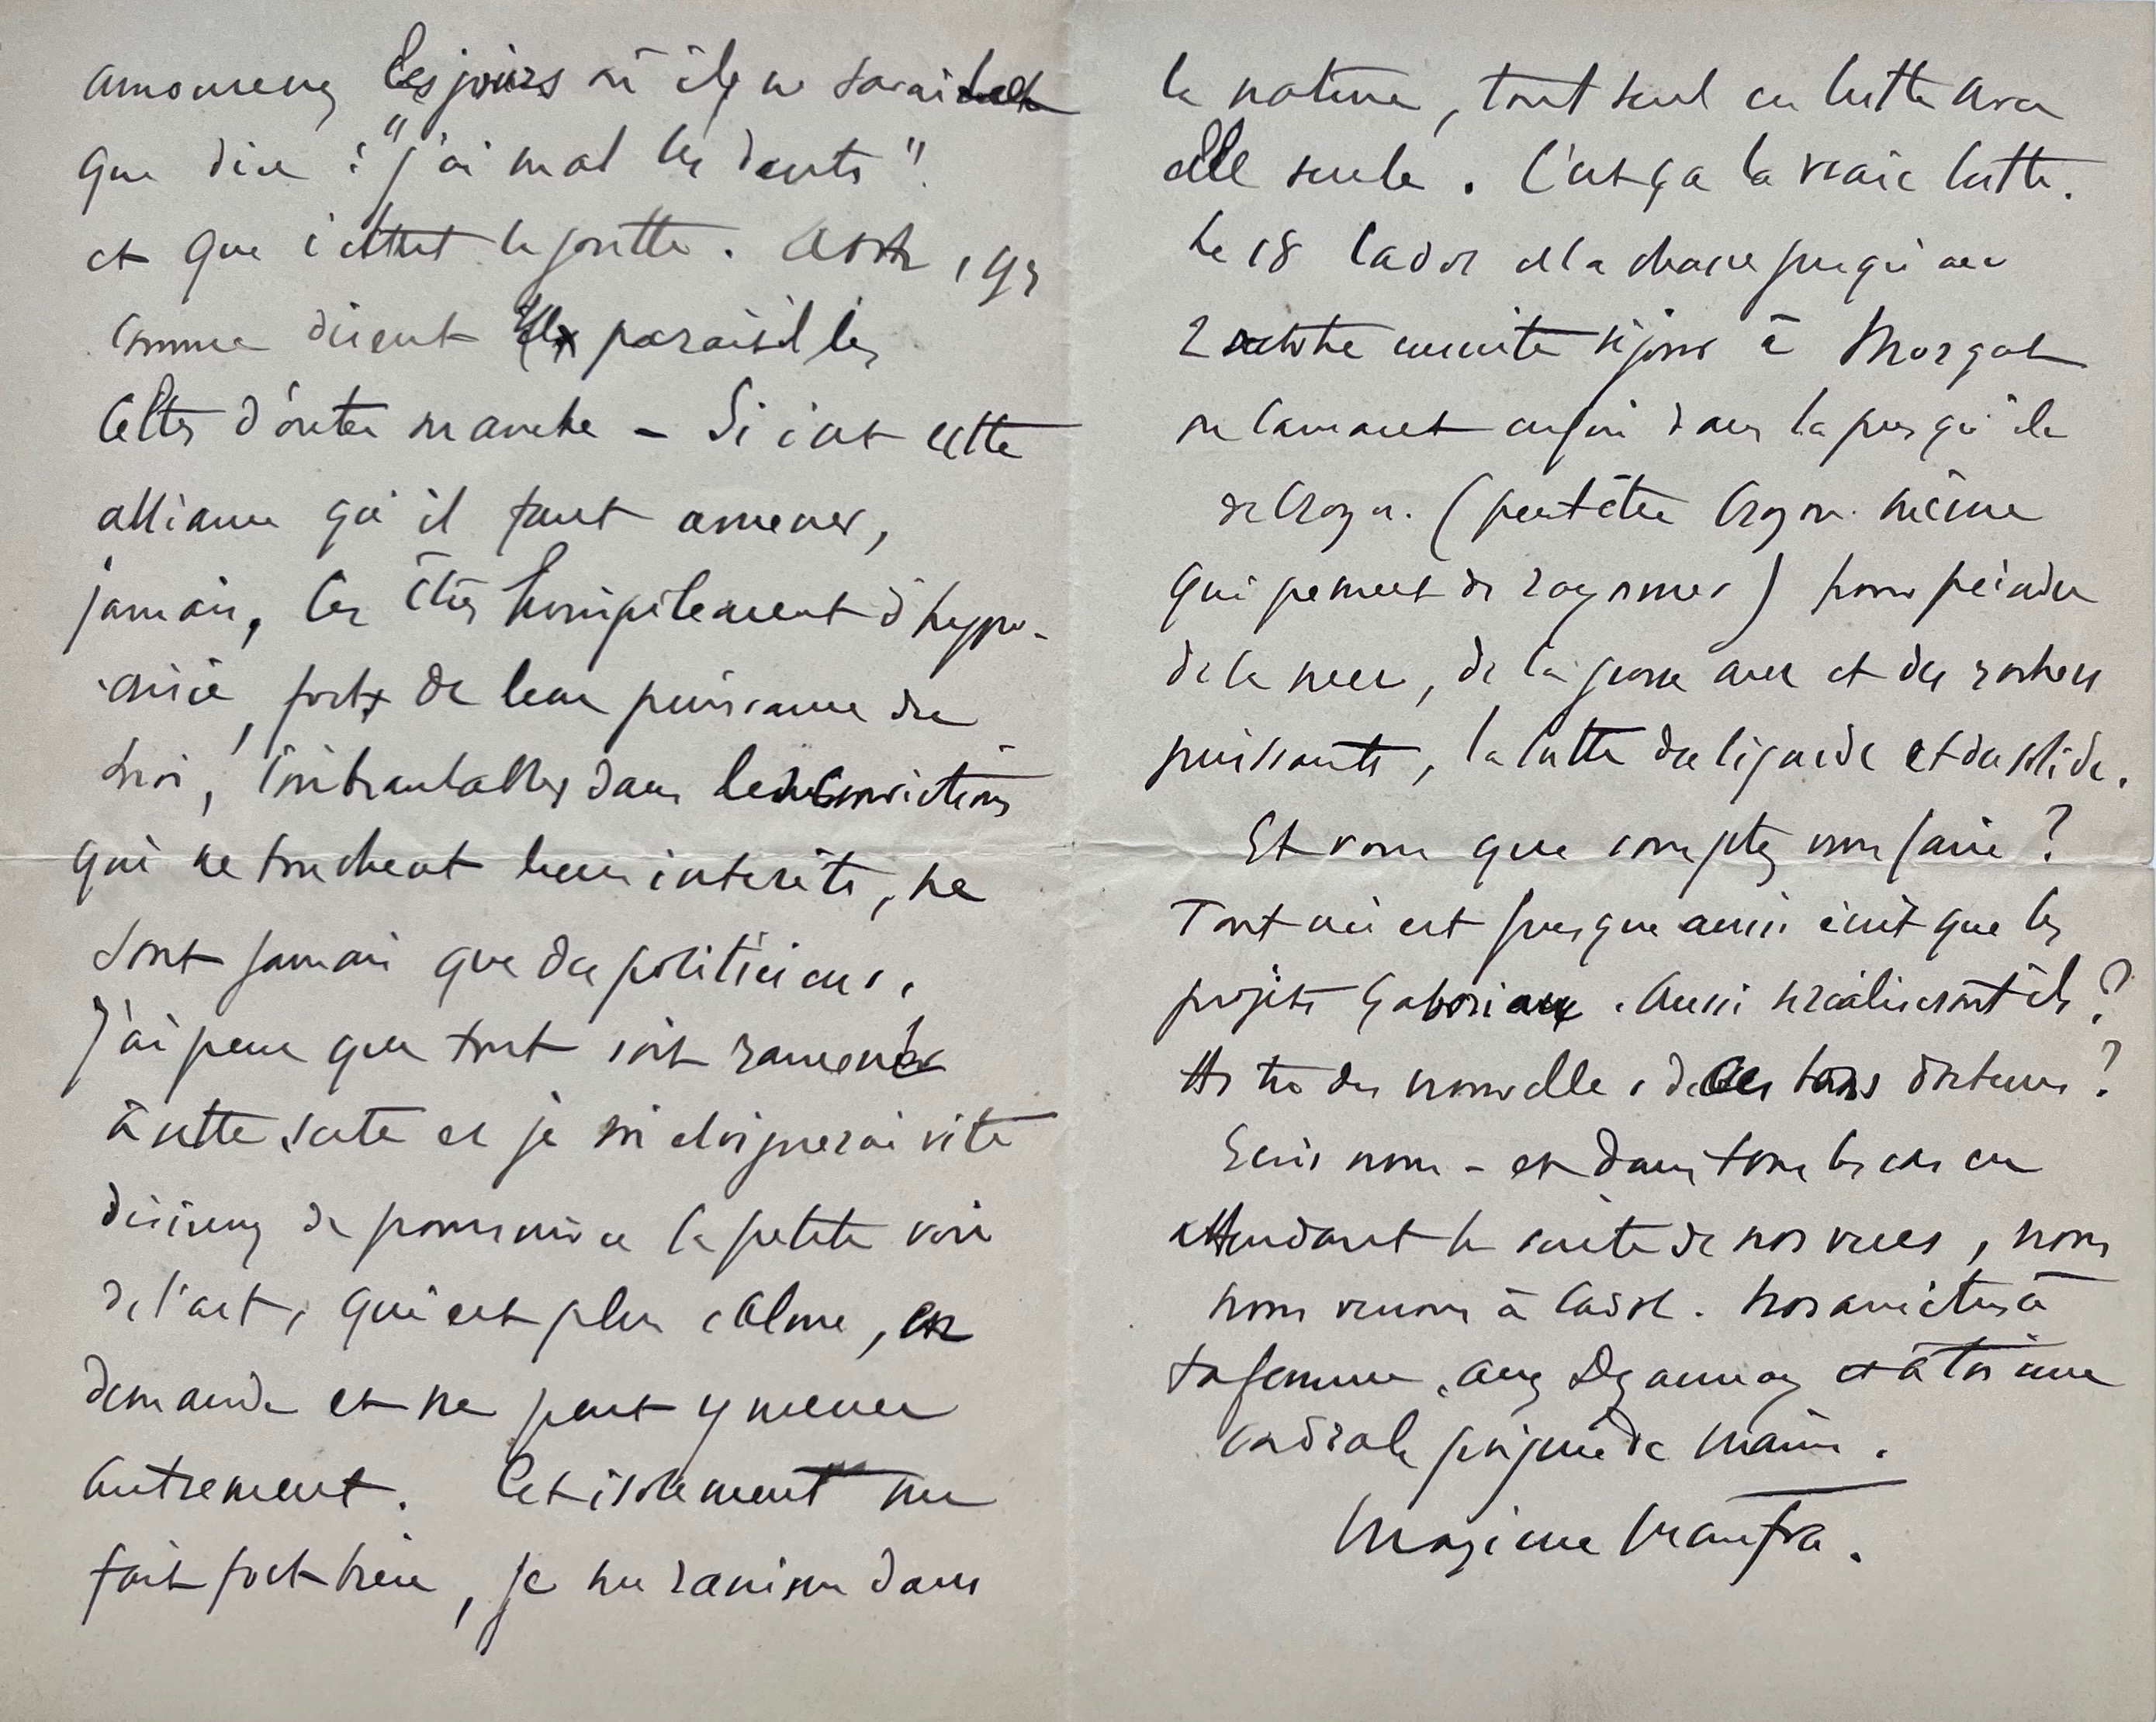 amoureux les jours où ils ne savaient
que dire : "j'ai mal les dents"!
et que c'était la goutte.
comme disent paraît il les
Celtes d'outre manche – Si c'est cette
alliance qu'il faut amener,
jamais, les êtres d'hypo-
crisie, forts de leur puissance du
moi, inébranlables dans leurs convictions
qui ne touchent leurs intérêts, ne
sont jamais que des politiciens.
J'ai peur que tout soit ramené
à cette secte et je m'éloignerai vite
désireux de poursuivre la petite voie
de l'art, qui est plus calme, en
demande et ne peut y mener
autrement. Cet isolement me
fait fort bien, je me ranime dans
la nature, tout seul en lutte avec
elle seule. C'est ça la vraie lutte.
Le 18 Cadol et la chasse jusqu'au
2 octobre ensuite séjour à Morgat
ou Camaret enfin dans la presqu'île
de Crozon. (peut être Crozon même
qui permet de rayonner) pour peindre
de la mer, de la grosse mer et des rochers
puissants, la lutte du liquide et du solide.
Et vous que comptez vous faire?
Tout ceci est presque aussi écrit que les
projets Gaboriaux. Aussi se réaliseront ils?
As tu des nouvelles de docteur?
Ecris nous – et dans tous les cas en
attendant la suite de nos vues, nous
nous verrons à Cadol. Nos amitiés à
ta femme, aux Dezaunay et à toi une
cordiale poignée de main.
Maxime Maufra.